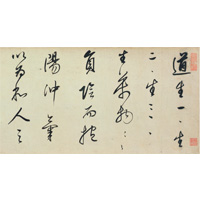 道生一〻生
二〻生三〻
生萬物〻〻
負陰而抱
陽沖氣
以為和人之